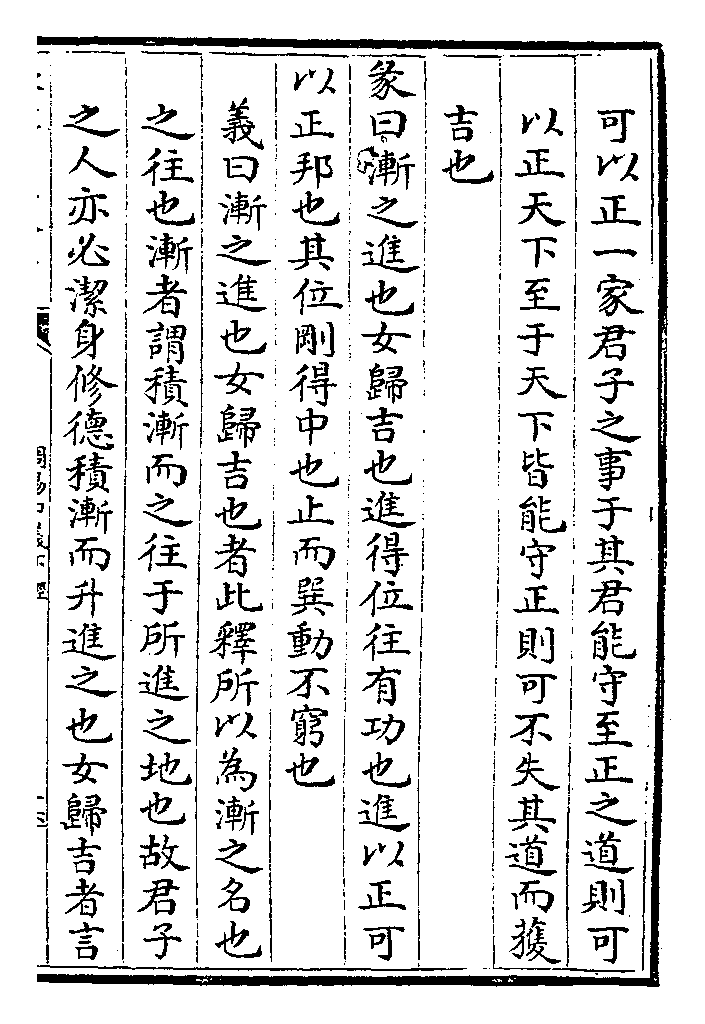 可以正一家君子之事于其君能守至正之道則可
以正天下至于天下皆能守正則可不失其道而獲
吉也
彖曰漸之進也女歸吉也進得位往有功也進以正可
以正邦也其位剛得中也止而巽動不窮也
義曰漸之進也女歸吉也者此釋所以為漸之名也
之往也漸者謂積漸而之往于所進之地也故君子
之人亦必潔身修德積漸而升進之也女歸吉者言